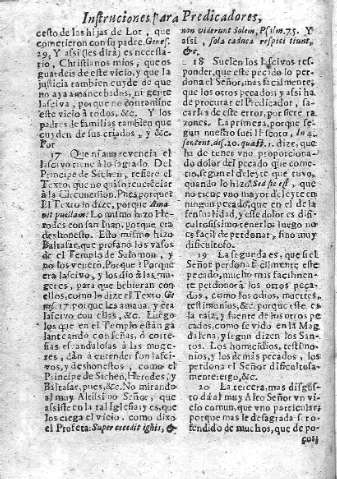 Instrucciones para Predicadores,
cesto de las hijas de Lot, que
cometieron con su padre. Genes.
29. Y assi (les dirà) es necessa-
rio, Christianos mios, que os
guardeis de este vicio, y que la
justicia tambien cuyde de que
no aya amancebados, ni gente
lasciva, porque no contamine
este vicio à todos, &c. Y los
padres de familias tambien que
cuyden de sus criados, y &c.
Por
17 Que ni aun reverencia el
lascivo tiene à lo sagrado. Del
Principe de Sichen, refiere el
Texto, que no quiso
à la Circuncision.
El Texto lo dize, porque
puellam: Lo mismo hizo
Herodes con San Iuan, porque era
deshonesto. Lo mismo hizo
Baltasar, que profanò los vasos
de el Templo de Salomon, y
no los venerò. Porque? Porque
era lascivo, y los diò à las
para que bebieran con
ellos, como lo dize el Texto
17. porque las ama, y era
lascivo con ellas, &c. Luego
los que en el Templo están ga-
lanteando con señas, ò corte-
sias, ò andalosas à las muge-
res, dàn à entender son lasci-
vos, y deshonestos, como el
Principe de Sichen, Herodes, y
Baltasar, pues, &c. No mirando
al muy Altissimo Señor, que
assiste en la tal Iglesia; y es, que
los ciega el vicio, como dixo
el Profeta: Super cecidit ignis, &
non viderunt Solem, Psalm. 75. Y
assi, sola caduca respicit
&c.
18 Suelen los lascivos respon-
der, que este pecado lo perdo-
na el Señor, mas facilmente, que
los otros pecados; y assi ha
de procurar el Predicador, sa-
carlos de este error, por siete ra-
zones. La primera, porque se-
gun nuestro sutil Escoto, In 4.
dist. 20. quæst. 1. dize, que
ha de tener uno proporciona-
do dolor del pecado que come-
tió, segun el deleyte que tuvo,
quando lo hizo: Sed sic est, que
no tiene uno mayor deleyte en
ningun pecado, que en el de la
sensualidad, y este dolor es di-
ficultosissimo: luego no le es
facil de perdonar, sino muy
dificultoso.
19 La segunda es, que si el
Señor
pecado, mucho mas facilmen-
te perdonarà los otros peca-
dos, como los odios, muertes,
testimonios, &c. porque este es
la raiz, y fuente de los otros pe-
cados, como se vido en la Mag-
dalena, y segun dizen los San-
tos. Los homicidios, testimo-
nios, y los demàs pecados, los
perdona el Señor dificultosa-
mente: ergo, &c.
20 La tercera, mas disgus-
to dà al muy Alto Señor un vi-
cio comun, que uno particular,
porque mas le desagrada si
ofendido de muchos, que de po-
cos;